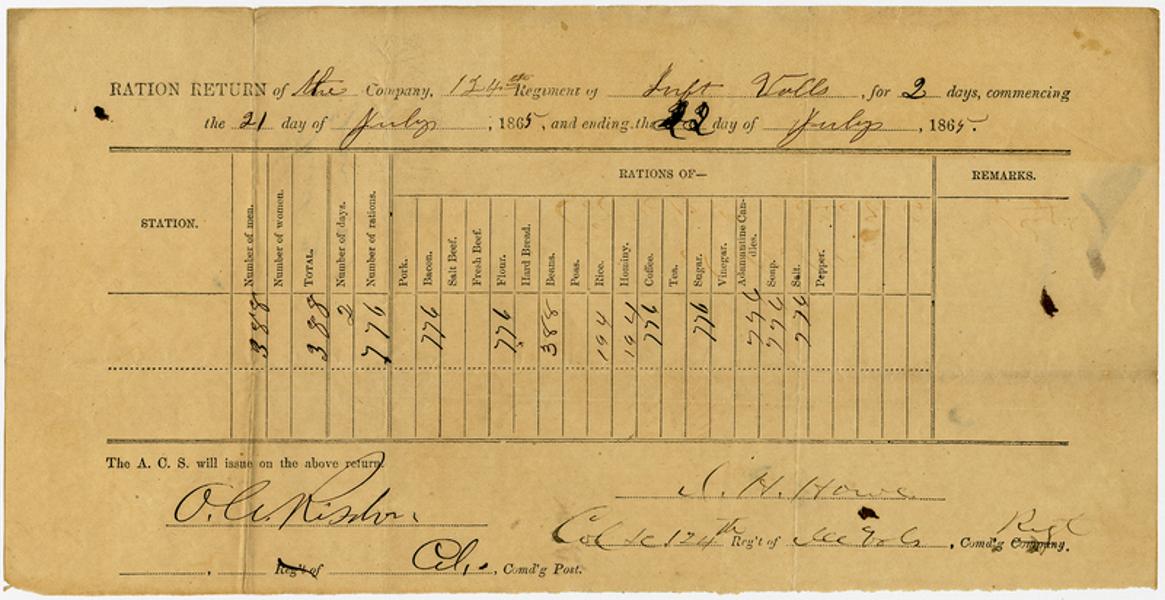 RATION RETURN of the Company, 124th Regiment of Inft Volls, for 2 days, commencing
the 21 day of July, 1865, and ending the 22 day of July, 1865.
RATIONS OF—
REMARKS.
STATION.
Number of men.
Number of women.
TOTAL.
Number of days.
Number of rations.
Pork.
Bacon.
Salt Beef.
Fresh Beef.
Flour.
Hard Bread.
Beans.
Peas.
Rice.
Hominy.
Coffee.
Tea.
Sugar.
Vinegar.
Adamantine Candles.
Soap.
Salt.
Pepper.
388 388 2 776 776 776 388 194 194 776 776 776 776 776
The A. C. S. will issue on the above return.
J. H. Howe
O. C. Risdon.
Col 124th Reg't of Ill Vols, Com'd'g Company. Regt
Reg't of Col., Com'd'g Post.